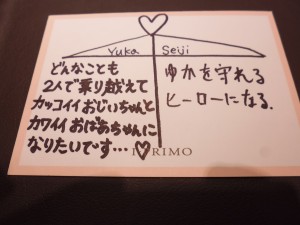 Yuka
Seiji
どんなことも
2人で乗り越えて
カッコイイおじいちゃんと
カワイイおばあちゃんに
なりたいです…♡
ゆかを守れる
ヒーローになる.
RIMO